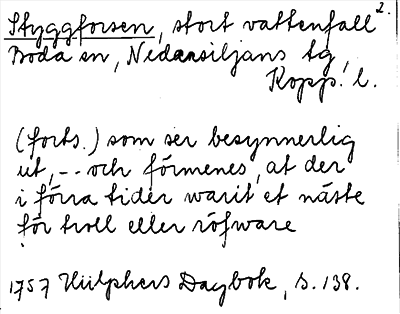 Styggforsen, stort vattenfall 2.
Boda sn, Nedansiljans tg,
Kopp. l.
(forts.) som ser besynnerlig
ut, -- och förmenes, at der
i förra tider warit et näste
för troll eller röfware
1757 Hülphers Dagbok, s. 138.